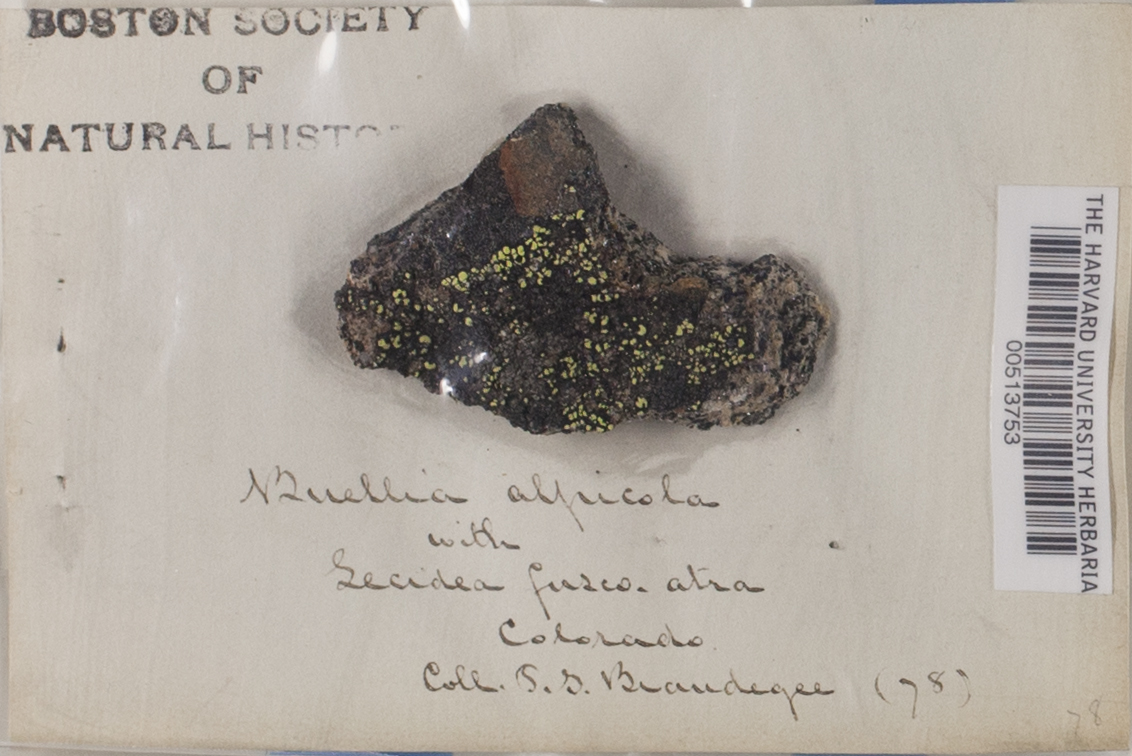 BOSTON SOCIETY
OF
NATURAL HISTO
Buellia alpicola
with
Lecidea fusco-atra
Colorado
Coll. T. S. Brandegee (78)
78
THE HARVARD UNIVERSITY HERBARIA
00513753